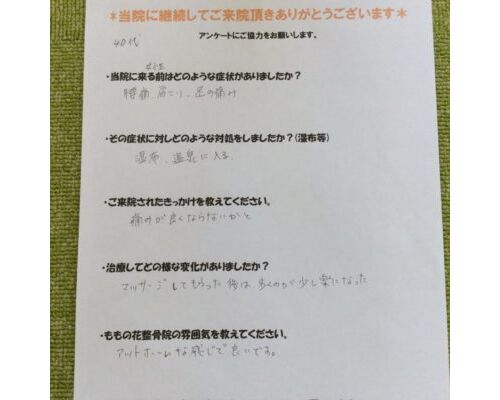 *当院に継続してご来院頂きありがとうございます*
アンケートにご協力をお願いします。
40代
女性
・当院に来る前はどのような症状がありましたか？
腰痛 肩こり、足の痛み
・その症状に対しどのような対処をしましたか？(湿布等)
湿布、温泉に入る
・ご来院されたきっかけを教えてください。
痛みが良くならないかと
・治療してどの様な変化がありましたか？
マッサージしてもらった後は、歩くのが少し楽になった
・ももの花整骨院の雰囲気を教えてください。
アットホームな感じで良いです。